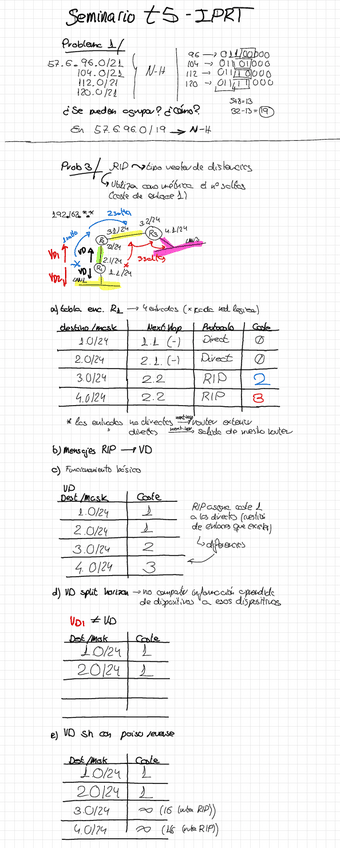 Seminario t5 - IPRT
Problema 1/
57.6.96.0/21
104.0/21
112.0/21
120.0/21
N-H
96 → 01100000
104 → 01101000
112 → 01110000
120 → 01111000
32-13=19
¿Se pueden agrupar? ¿Cómo?
En 57.6.96.0/19 → N-H
Prob 3/ RIP → tipo vector de distancias
Utiliza como métrica el nº saltos
(coste de enlace 1)
192.62.*.*
2 saltos
1 salto
3 saltos
3.1/24
3.2/24
R3
4.1/24
R2
2.2/24
2.1/24
R1
1.1/24
VD1
VD2
VD
VD
LAN1
LAN3
a) tabla enc. R1 → 4 entradas (x cada red lógica)
destino/mask Next Hop Protocolo Coste
1.0/24 1.1 (-) Direct Ø
2.0/24 2.1 (-) Direct Ø
3.0/24 2.2 RIP 2
4.0/24 2.2 RIP 3
* las entradas no directas → router exterior
directas → salida de nuestro router
b) mensajes RIP → VD
c) Funcionamiento básico
VD
Dest/Mask Coste
1.0/24 1
2.0/24 1
3.0/24 2
4.0/24 3
RIP asigna coste 1
a las directas (cuestión
de enlaces que ejecuta)
↳ diferencias
d) VD split horizon → no compartir información aprendida
de dispositivos a esos dispositivos
VD1 ≠ VD
Dest/Mask Coste
1.0/24 1
2.0/24 1
e) VD SH con poison reverse
Dest/Mask Coste
1.0/24 1
2.0/24 1
3.0/24 ∞ (16 (en RIP))
4.0/24 ∞ (16 (en RIP))